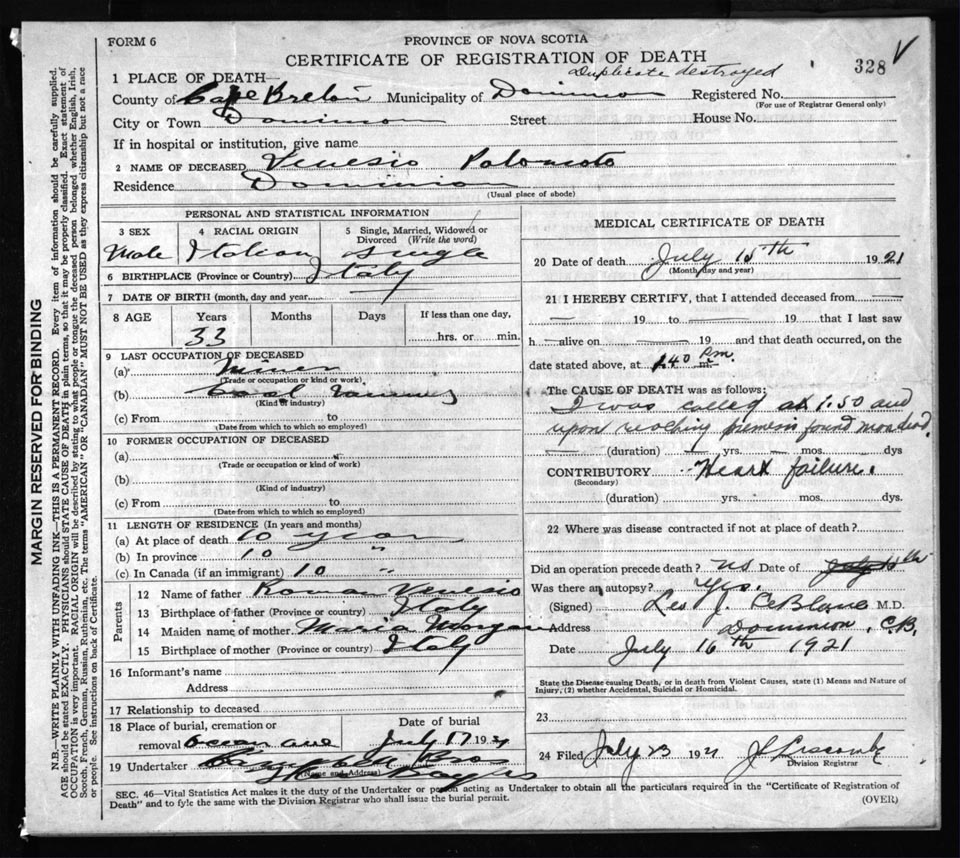 FORM 6
PROVINCE OF NOVA SCOTIA
CERTIFICATE OF REGISTRATION OF DEATH
Duplicate destroyed
328
1 PLACE OF DEATH—
County of Cape Breton Municipality of Dominion Registered No.
(For use of Registrar General only)
City or Town Dominion Street House No.
If in hospital or institution, give name
2 NAME OF DECEASED Venesio
Residence Dominion
(Usual place of abode)
PERSONAL AND STATISTICAL INFORMATION
3 SEX 4 RACIAL ORIGIN 5 Single, Married, Widowed or Divorced (Write the word)
Male Italian Single
6 BIRTHPLACE (Province or Country) Italy
7 DATE OF BIRTH (month, day and year)
8 AGE Years Months Days If less than one day,
33 hrs. or min.
9 LAST OCCUPATION OF DECEASED
(a) Miner
(Trade or occupation or kind or work)
(b) Coal
(Kind of industry)
(c) From to
(Date from which to which so employed)
10 FORMER OCCUPATION OF DECEASED
(a)
(Trade or occupation or kind of work)
(b)
(Kind of industry)
(c) From to
(Date from which to which so employed)
11 LENGTH OF RESIDENCE (In years and months)
(a) At place of death 10 years
(b) In province 10 "
(c) In Canada (if an immigrant) 10 "
Parents
12 Name of father Roman
13 Birthplace of father (Province or country) Italy
14 Maiden name of mother Maria Morgan
15 Birthplace of mother (Province or country) Italy
16 Informant's name
Address
17 Relationship to deceased
18 Place of burial, cremation or removal Ocean ave
Date of burial
July 17 1921
19 Undertaker Bros
(Name and Address)
MEDICAL CERTIFICATE OF DEATH
20 Date of death July 15th 1921
(Month, day and year)
21 I HEREBY CERTIFY, that I attended deceased from —
— 19 to — 19 that I last saw
h— alive on — 19 and that death occurred, on the
date stated above, at 1.40 P.m. m.
The CAUSE OF DEATH was as follows:
I was called at 1.50 and
upon reaching found man dead.
(duration) yrs. mos. dys
CONTRIBUTORY Heart failure.
(Secondary)
(duration) yrs. mos. dys.
22 Where was disease contracted if not at place of death?
Did an operation precede death? no Date of
Was there an autopsy? Yes.
(Signed) Leo J. LeBlanc M.D.
Address Dominion, C.B.
Date July 16th 1921
State the Disease causing Death, or in death from Violent Causes, state (1) Means and Nature of
Injury, (2) whether Accidental, Suicidal or Homicidal.
23
24 Filed July 23 1921 J Liscombe
Division Registrar
SEC. 46—Vital Statistics Act makes it the duty of the Undertaker or person acting as Undertaker to obtain all the particulars required in the "Certificate of Registration of
Death" and to fyle the same with the Division Registrar who shall issue the burial permit.
(OVER)
MARGIN RESERVED FOR BINDING
N.B.—WRITE PLAINLY WITH UNFADING INK—THIS IS A PERMANENT RECORD. Every item of information should be carefully supplied.
AGE should be stated EXACTLY. PHYSICIANS should STATE CAUSE OF DEATH in plain terms, so that it may be properly classified. Exact statement of
OCCUPATION is very important. RACIAL ORIGIN will be described by stating to what people or tongue the deceased person belonged whether English, Irish,
Scotch, French, German, Russian, Ruthenian, etc. The terms "AMERICAN" or "CANADIAN" MUST NOT BE USED as they express citizenship but not a race
or people. See instructions on back of Certificate.